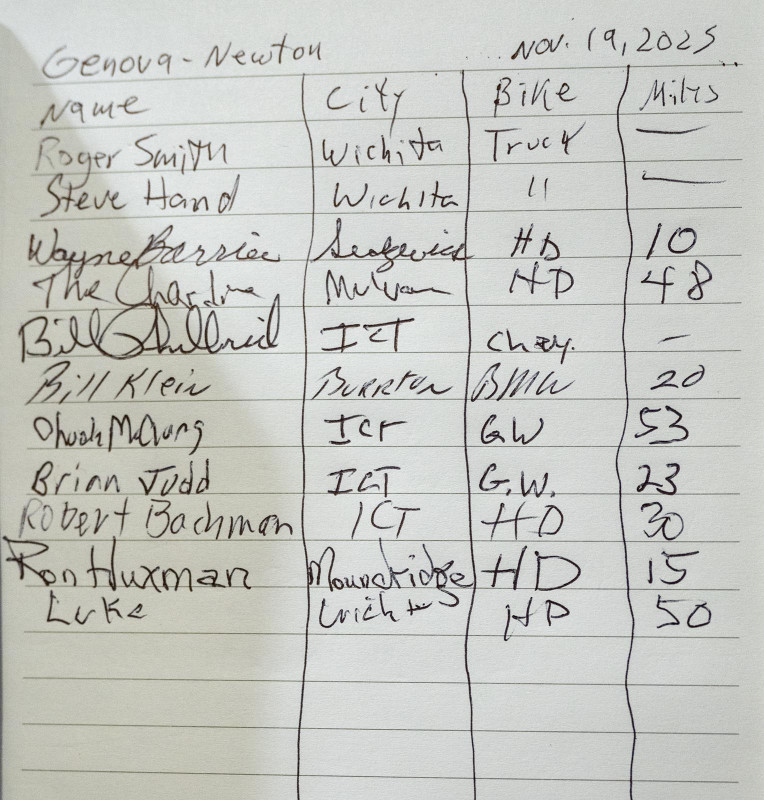 Genova - Newton Nov. 19, 2025
Name City Bike Miles
Roger Smith Wichita Truck —
Steve Hand Wichita 11 —
Wayne Barrier Sedgwick HD 10
The Chardon Mulvan HD 48
Bill ICT Chey. -
Bill Klein Burrton BMW 20
Chuck McClung ICT GW 53
Brian Judd ICT G.W. 23
Robert Bachman ICT HD 30
Ron Huxman Moundridge HD 15
Luke Wichita HD 50